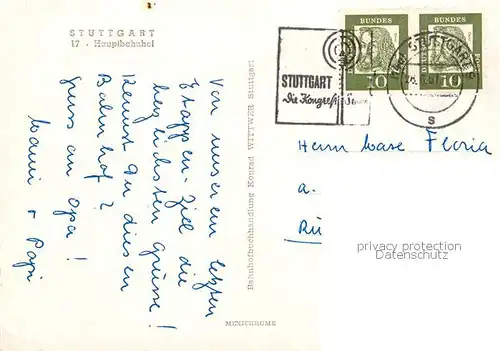 STUTTGART
17 · Hauptbahnhof
Von unserem letzten
Etappen-Ziel die
herzlichsten Grüsse!
Kennst Du diesen
Bahnhof?
Gruss an Opa!
Mami + Papi
Bahnhofbuchhandlung Konrad WITTWER Stuttgart
MEXICHROME
STUTTGART
Die Kongreßstadt
DEUTSCHE BUNDESPOST
10
DEUTSCHE BUNDESPOST
10
STUTTGART
s
Herrn
Floria
a.
Rü
privacy protection
Datenschutz